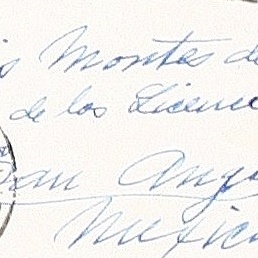 is Montes de
de los Licenc
San Ange
Mexico